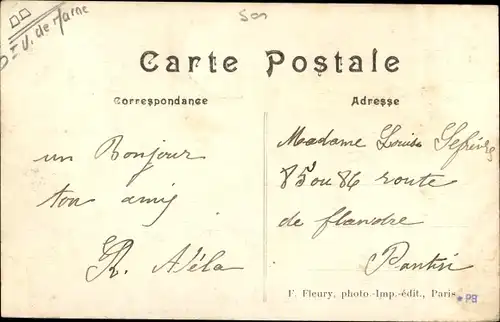 V. de Marne
Carte Postale
Correspondance
Adresse
un Bonjour
ton amis
R.
Madame Louise Lefèvre
85 ou 86 route
de flandre
Pantin
F. Fleury, photo-Imp.-édit., Paris